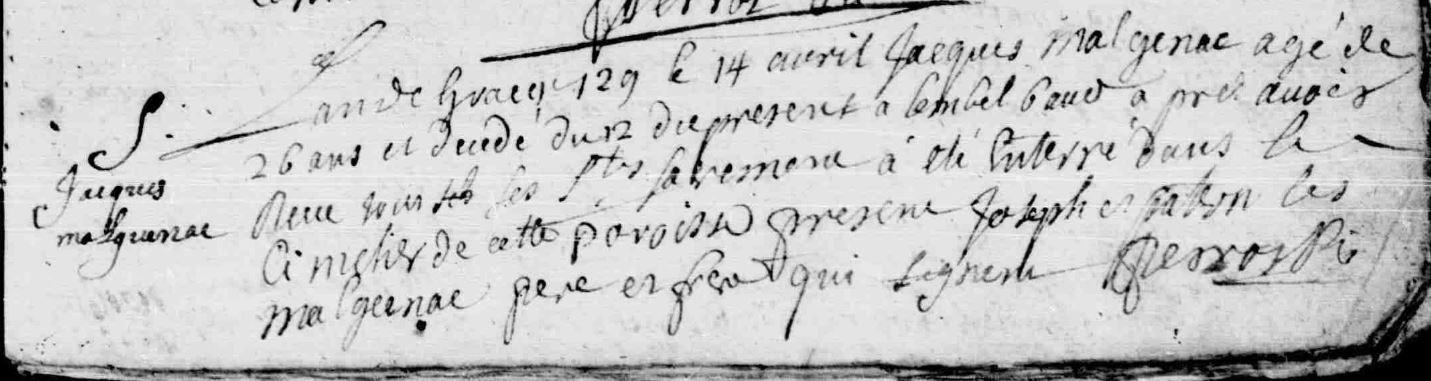 S.
Jacques
malguenac
L'an de grace 1729 le 14 avril Jacques malgenac agé de
26 ans et decedé du 12 du present a apres avoir
Receu tous les Sts sacremens a eté Enterré dans le
Cimetier de cette paroisse presens Joseph et les
malgenac pere et frere qui signent perros